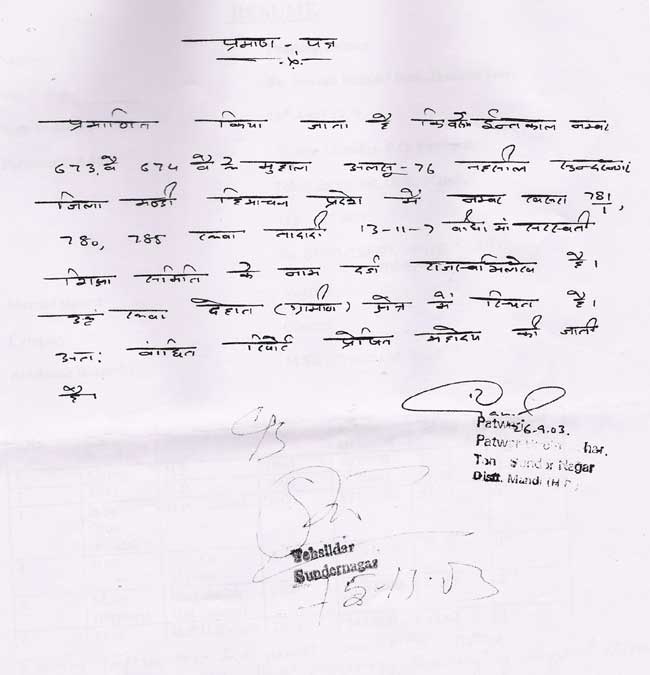 प्रमाण - पत्र
प्रमाणित किया जाता है कि इन्तकाल नम्बर
673 व 674 के मुहाल अलसू-76 तहसील सुन्दरनगर
जिला मण्डी हिमाचल प्रदेश में नम्बर खसरा 781/1,
780, 785 रकबा तादादी 13-11-7 बीघा मां सरस्वती
शिक्षा समिति के नाम दर्ज राजस्व अभिलेख है।
रकबा देहात (ग्रामीण) क्षेत्र में स्थित है।
अतः वांछित रिपोर्ट प्रेषित महोदय की जाती
है।
Patwari 26-9-03.
Patwar
Teh Sundar Nagar
Distt. Mandi (H.P.)
Tehsildar
Sundernagar